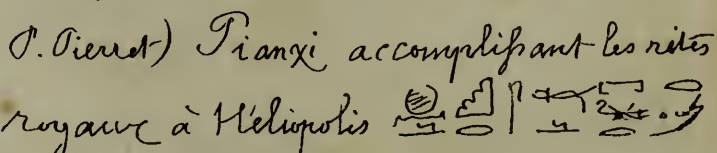 P. Pierret) Pianxi accomplissant les rites
royaux à Héliopolis